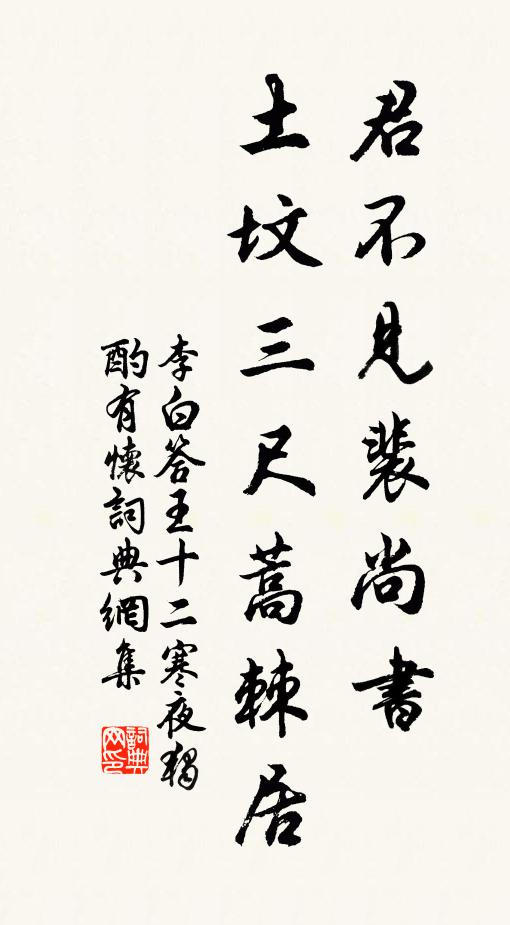 君不見裴尚書
土坟三尺蒿棘居
李白答王十二寒夜獨
酌有懷詞典網集
詞典
网印